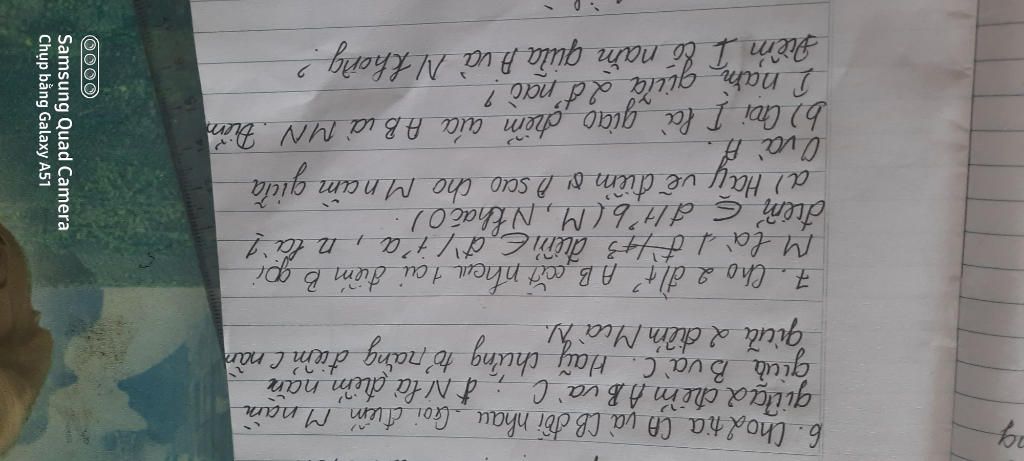 6. Cho 2 tia CA và CB đối nhau. Gọi điểm M nằm
giữa 2 điểm A B và C ; đ N là điểm nằm
giữa B và C. Hãy chứng tỏ rằng điểm C nằm
giữa 2 điểm M và N.
7. Cho 2 đ/t' AB cắt nhau tại điểm B gọi
M là 1 điểm ∈ đ/t' a, n là 1
điểm ∈ đ/t' b (M, N khác O).
a) Hãy vẽ điểm A sao cho M nằm giữa
O và A.
b) Gọi I là giao điểm của AB và MN. Điểm
I nằm giữa 2 đ' nào?
Điểm I có nằm giữa A và N không?
Samsung Quad Camera
Chụp bằng Galaxy A51